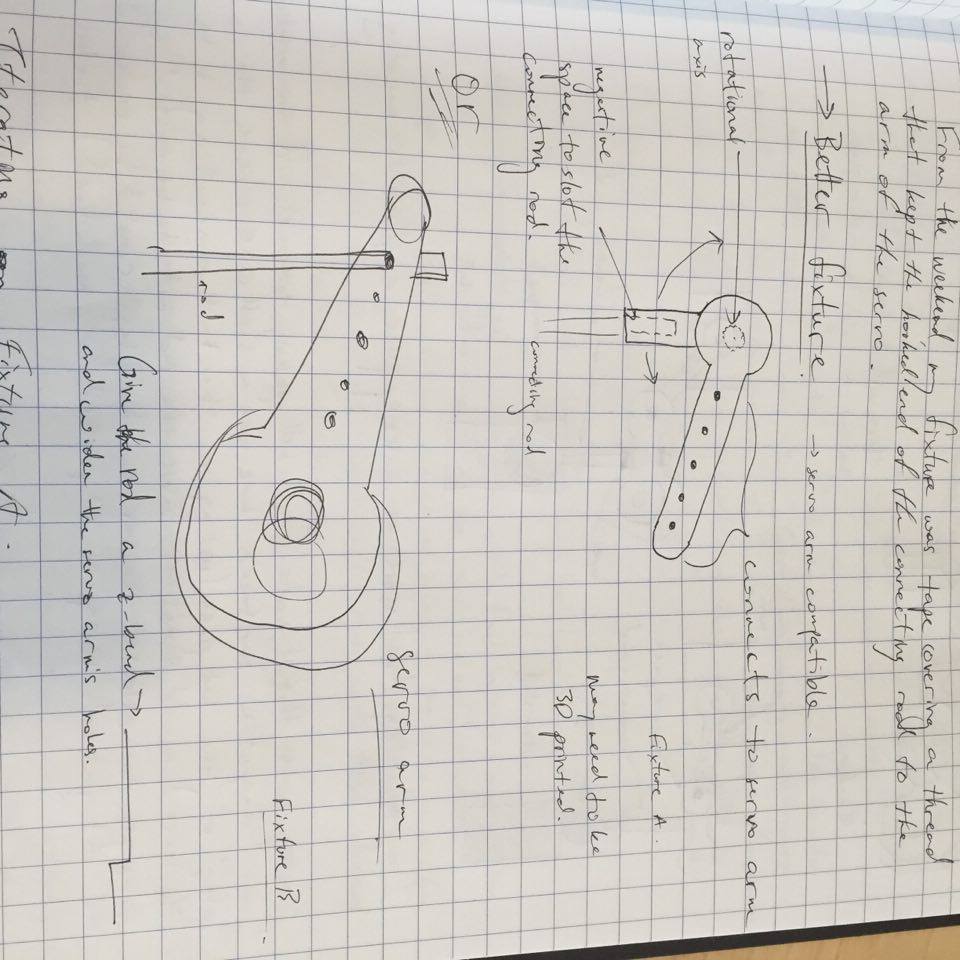 From the weekend my fixture was tape covering a thread
that kept the hooked end of the connecting rod to the
arm of the servo.
→ Better fixture. → servo arm compatible.
rotational
axis
connects to servo arm
negative
space to slot the
connecting rod.
connecting rod
Fixture A.
may need to be
3D printed.
Or
rod
servo arm
Fixture B.
Give the rod a z-bend →
and widen the servo arm's holes.
Iterations on Fixture A.